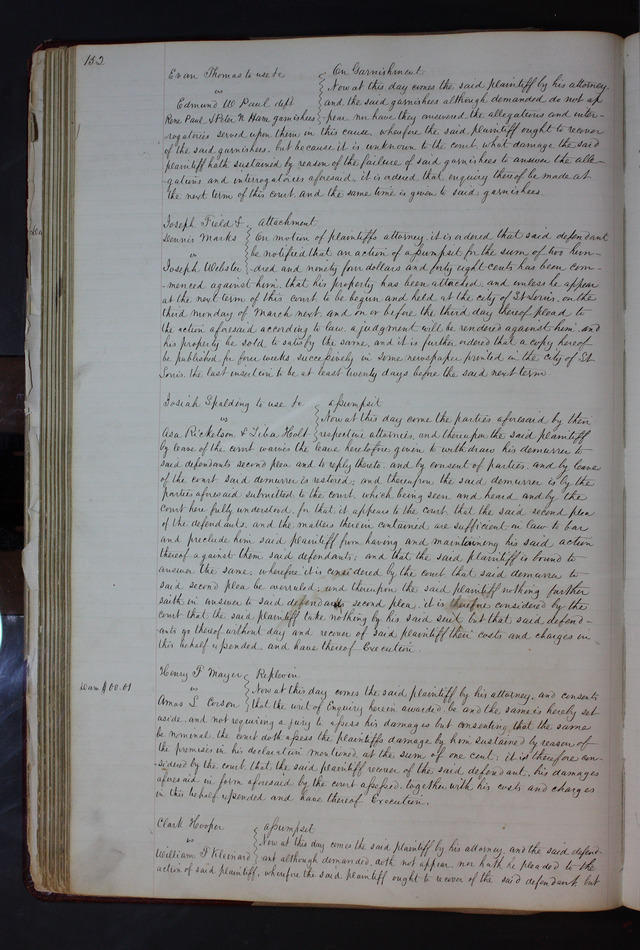 152
Evan Thomas to use &c } On Garnishment
vs } Now at this day comes the said plaintiff by his attorney
Edmund W Paul deft } and the said garnishees although demanded do not ap
Rene Paul & Peter N Ham garnishees } pear nor have they answered the allegations and inter-
rogatories served upon them in this cause, wherefore the said plaintiff ought to recover
of the said garnishees, but because it is unknown to the court what damage the said
plaintiff hath sustained by reason of the failure of said garnishees to answer the alle-
gations and interrogatories aforesaid, it is ordered that enquiry thereof be made at
the next term of this court and the same time is given to said garnishees.
Joseph Field & } Attachment
Dennis Marks } On motion of plaintiffs attorney, it is ordered that said defendant
vs } be notified that an action of assumpsit for the sum of two hun-
Joseph Webster } dred and ninety four dollars and forty eight cents has been com-
menced against him, that his property has been attached, and unless he appear
at the next term of this court to be begun and held at the city of St Louis, on the
third monday of March next, and on or before the third day thereof plead to
the action aforesaid according to law, a judgment will be rendered against him, and
his property be sold to satisfy the same, and it is further ordered that a copy hereof
be published for four weeks successively in some newspaper printed in the city of St
Louis, the last insertion to be at least twenty days before the said next term.
Josiah Spalding to use &c } assumpsit
vs } Now at this day come the parties aforesaid by their
Asa Ricketson & Holt } respective attornies, and thereupon the said plaintiff
by leave of the court waives the leave heretofore given to withdraw his demurrer to
said defendants second plea and to reply thereto, and by consent of parties, and by leave
of the court said demurrer is restored; and thereupon the said demurrer is by the
parties aforesaid submitted to the court, which being seen and heard and by the
court here fully understood, for that it appears to the court, that the said second plea
of the defendants, and the matters therein contained are sufficient in law to bar
and preclude him said plaintiff from having and maintaining his said action
thereof against them said defendants; and that the said plaintiff is bound to
answer the same; wherefore it is considered by the court that said demurrer to
said second plea be overruled; and thereupon the said plaintiff nothing further
saith in answer to said defendants second plea, it is therefore considered by the
court that the said plaintiff take nothing by his said suit but that said defend-
ants go thereof without day and recover of said plaintiff their costs and charges in
this behalf expended, and have thereof Execution.
Henry F Mayer } Replevin
Dam $00.01
vs } Now at this day comes the said plaintiff by his attorney, and consents
Amos L Corson } that the writ of Enquiry herein awarded be and the same is hereby set
aside, and not requiring a jury to assess his damages but consenting that the same
be nominal, the court doth assess the plaintiffs damage by him sustained by reason of
the premises in his declaration mentioned, at the sum of one cent; it is therefore con-
sidered by the court, that the said plaintiff recover of the said defendant, his damages
aforesaid in form aforesaid by the court assessed, together with his costs and charges
in this behalf expended and have thereof Execution.
Clark Hooper } assumpsit
vs } Now at this day comes the said plaintiff by his attorney, and the said defend-
William T } ant although demanded, doth not appear, nor hath he pleaded to the
action of said plaintiff, wherefore the said plaintiff ought to recover of the said defendant, but